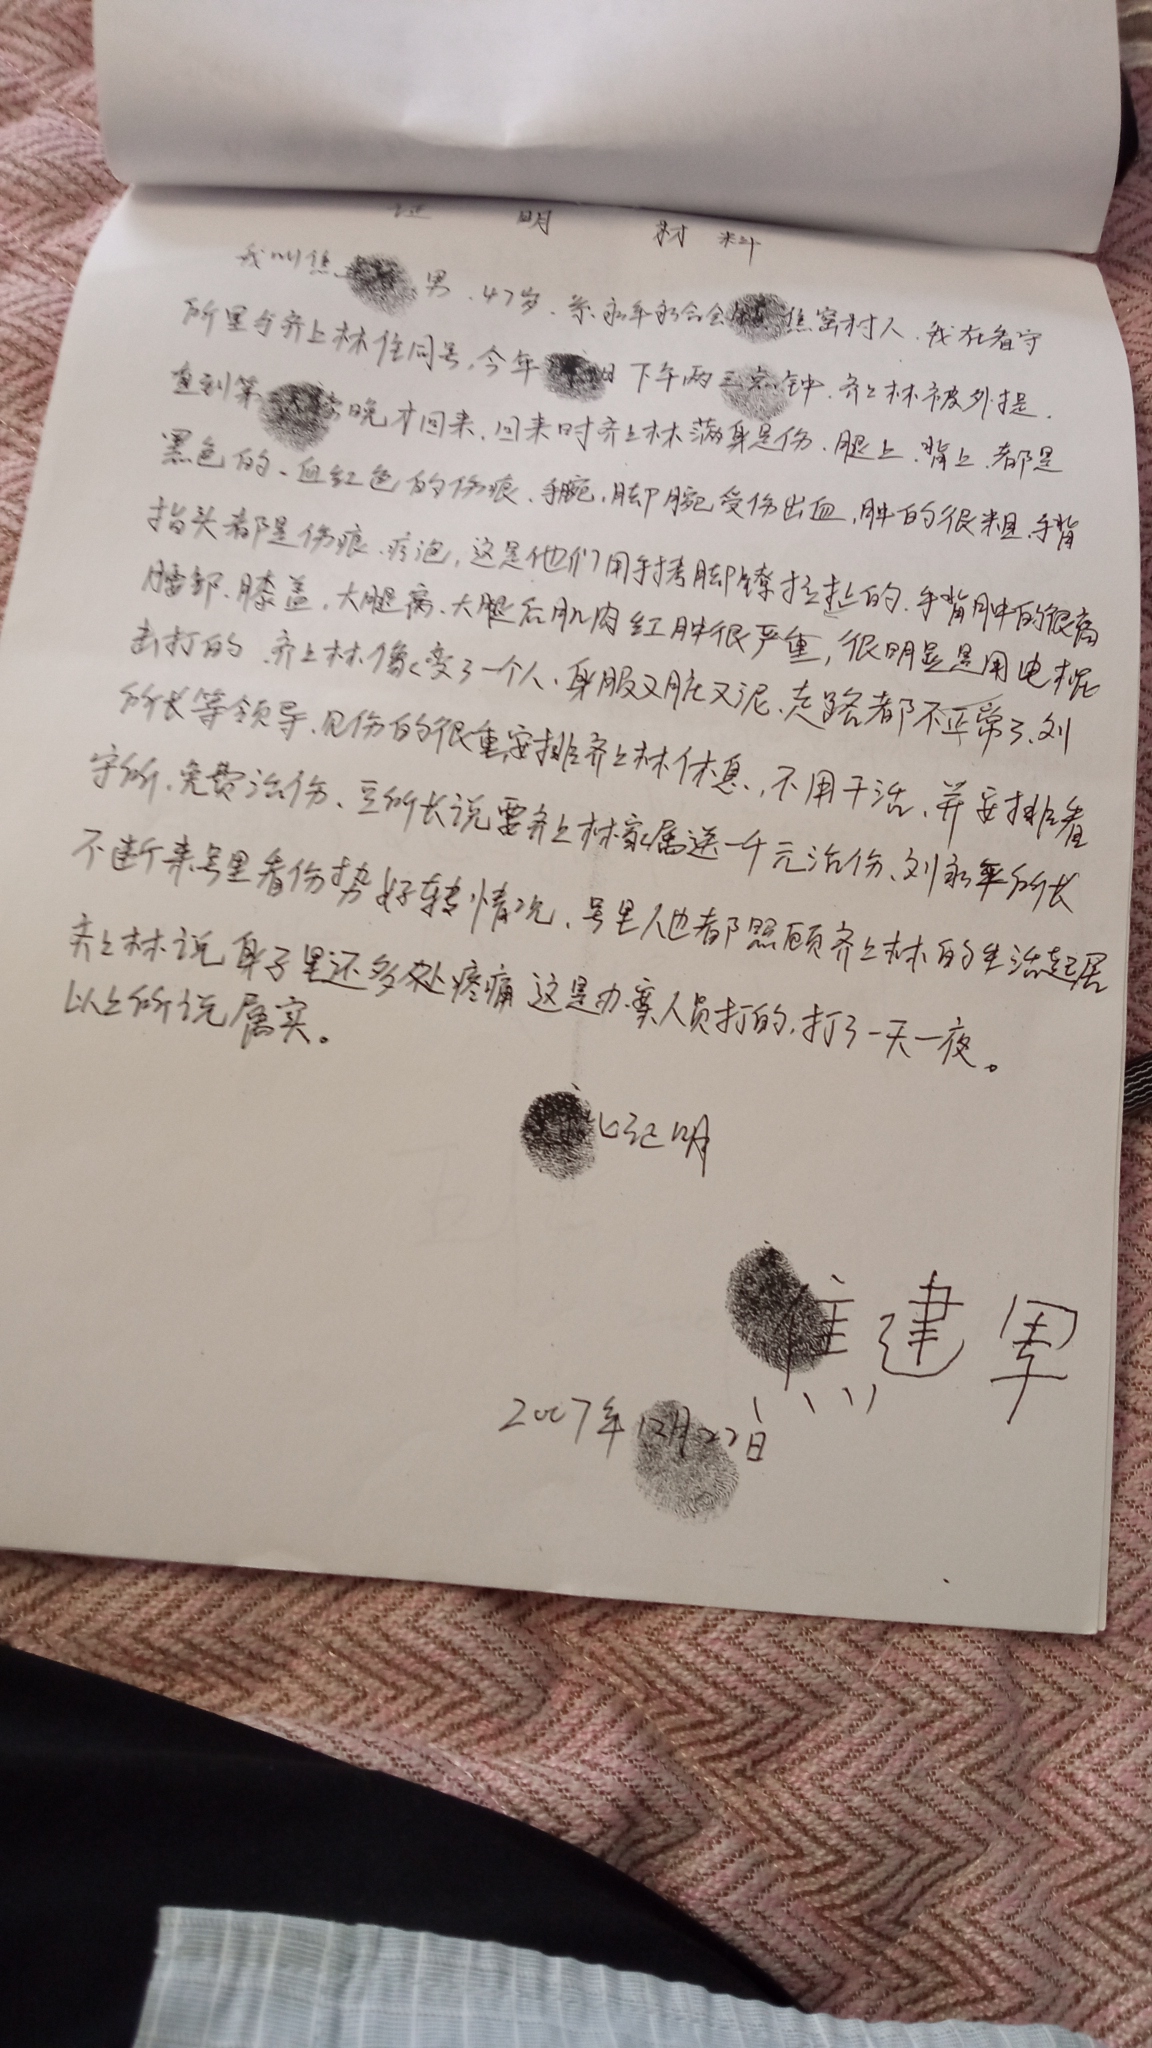 证 明 材 料
我叫焦 男、47岁、系永年永合会 焦窑村人、我在看守
所里与齐上林住同号,今年 日下午两三 钟、齐上林被外提,
直到第 晚才回来、回来时齐上林满身是伤、腿上、背上、都是
黑色的、血红色的伤痕、手腕、脚腕受伤出血、肿的很粗、手背
指头都是伤痕、疗泡,这是他们用手拷脚镣拉扯的、手背肿的很高
腰部、膝盖、大腿离、大腿后肌肉红肿很严重,很明显是用电棍
击打的、齐上林像变了一个人、身服又脏又泥、走路都不正常了、刘
所长等领导、见伤的很重,安排齐上林休息、不用干活、并安排看
守所、免费治伤、豆所长说要齐上林家属送一千元治伤、刘永平所长
不断来号里看伤势好转情况、号里人也都照顾齐上林的生活起居
齐上林说身子里还多处疼痛这是办案人员打的,打了一天一夜。
以上所说属实。
此记明
焦建军
2007年12月27日